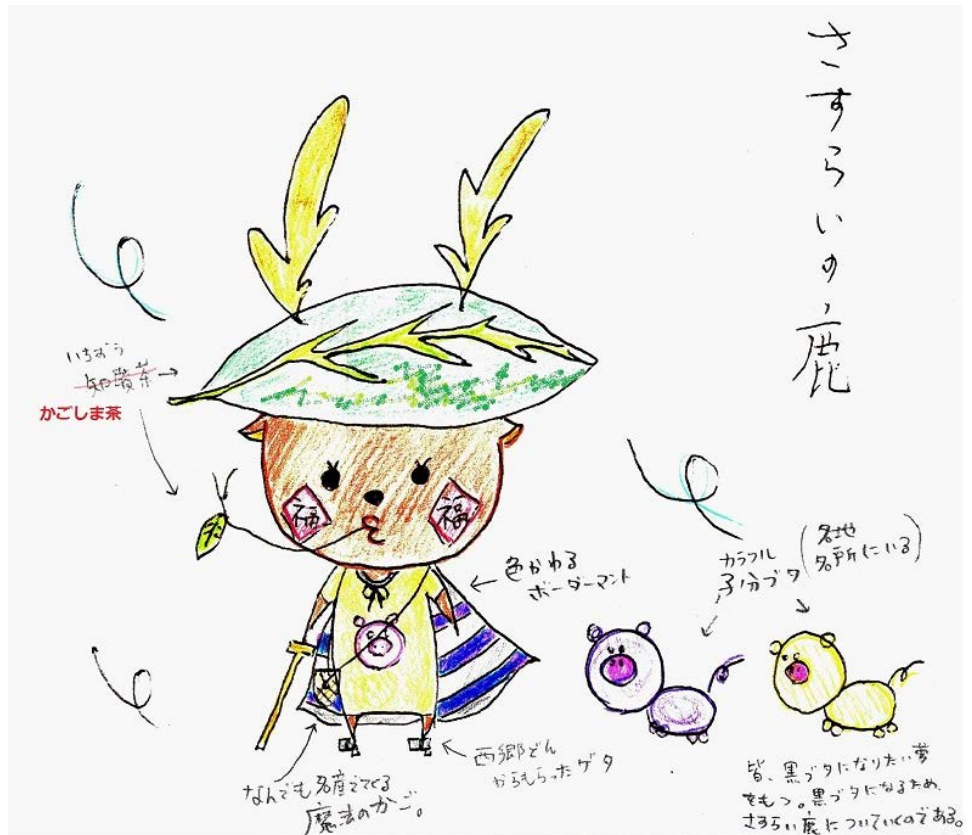 さすらいの鹿
いちおう
知覧茶→
かごしま茶
福 福
色かわる
ボーダーマント
カラフル
子分ブタ
(各地
名所にいる)
西郷どん
からもらったゲタ
なんでも名産でてくる
魔法のかご。
皆、黒ブタになりたい夢
をもつ。黒ブタになるため、
さすらい鹿についていくのである。